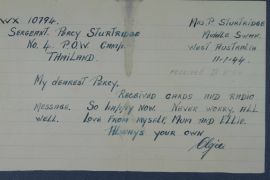 WX 10794.
SERGEANT. PERCY STURTRIDGE
No. 4. P.O.W. CAMP.
THAILAND.
MRS P. STURTRIDGE
MIDDLE SWAN.
WEST AUSTRALIA
11-1-44.
RECEIVED
MY DEAREST PERCY.
RECEIVED CARDS AND RADIO
MESSAGE. SO HAPPY NOW. NEVER WORRY, ALL
WELL. LOVE FROM MYSELF, MUM AND ELLIE.
ALWAYS YOUR OWN